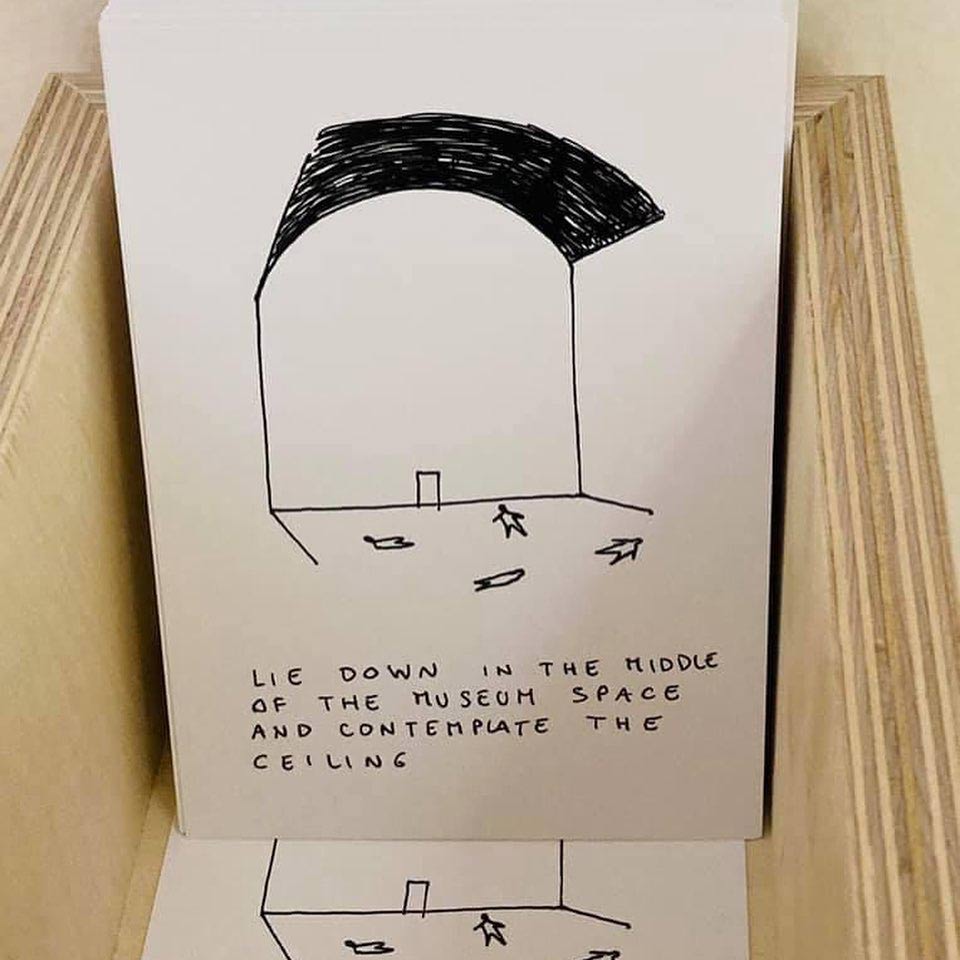 LIE DOWN IN THE MIDDLE
OF THE MUSEUM SPACE
AND CONTEMPLATE THE
CEILING